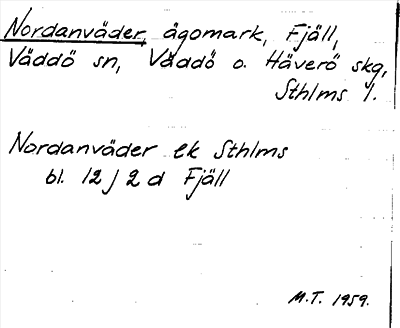 Nordanväder, ågomark, Fjäll,
Väddö sn, Väddö o. Häverö skg,
Sthlms l.
Nordanväder ek Sthlms
bl. 12 j 2 d Fjäll
M.T. 1959.